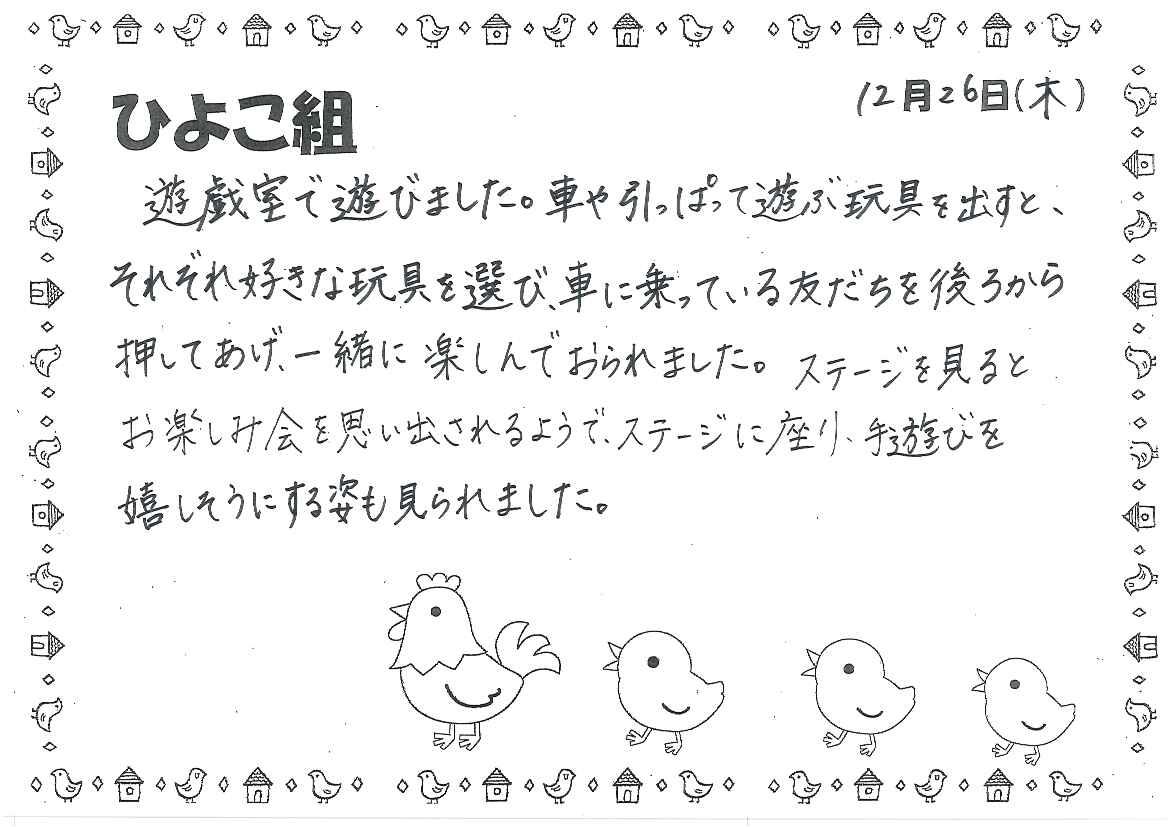 12月26日(木)
ひよこ組
遊戯室で遊びました。車や引っぱって遊ぶ玩具を出すと、
それぞれ好きな玩具を選び、車に乗っている友だちを後ろから
押してあげ、一緒に楽しんでおられました。ステージを見ると
お楽しみ会を思い出されるようで、ステージに座り、手遊びを
嬉しそうにする姿も見られました。